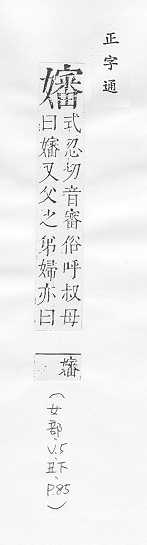 正字通
嬸
式忍切音審俗呼叔母
曰嬸又父之弟婦亦曰
嬸
(女部、V.5
丑下、
P.85)